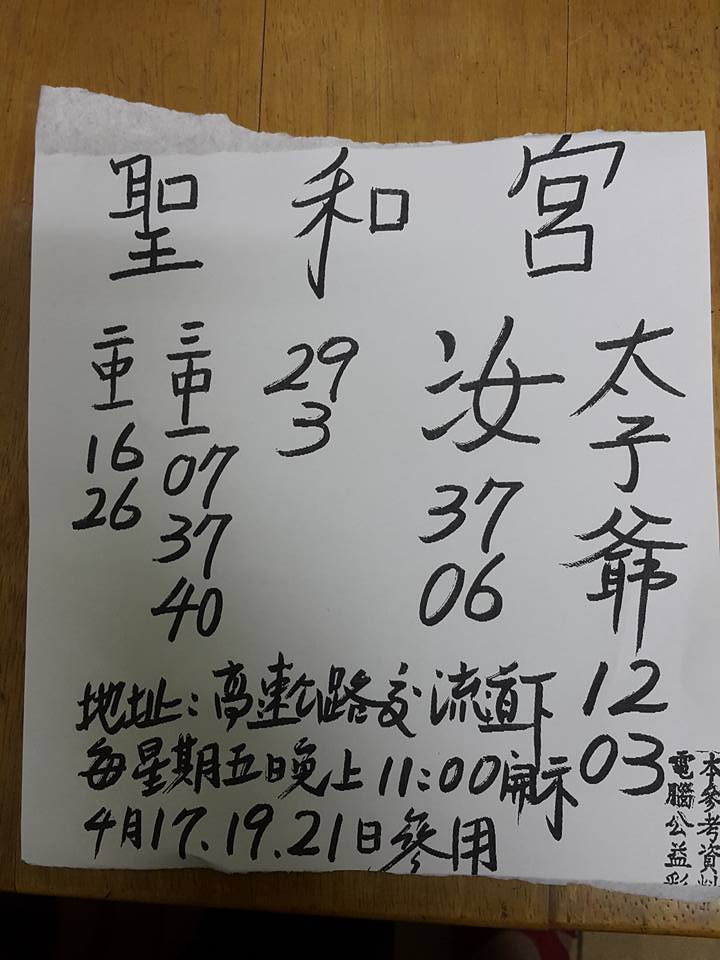 聖和宮
太子爺
12
03
汝
37
06
29
3
三中一
07
37
40
二中一
16
26
地址:高速公路交流道下
每星期五日晚上11:00開示
4月17.19.21日參用
本參考資料
電腦公益彩